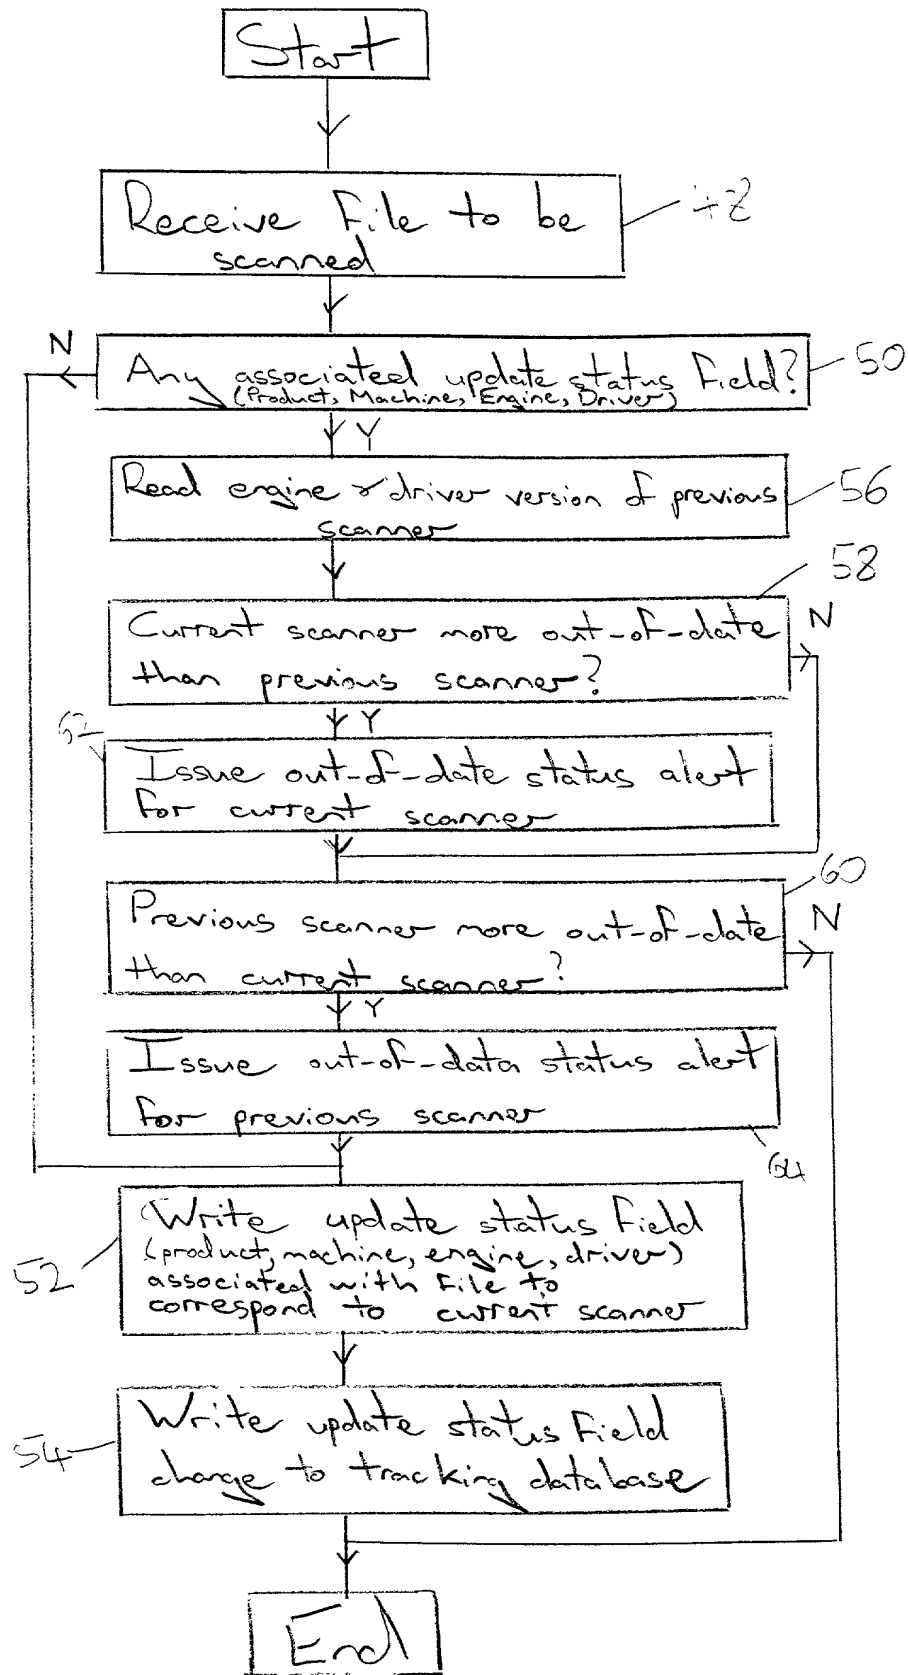 Start
Receive File to be
scanned
48
N
Any associated update status Field?
(Product, Machine, Engine, Driver)
50
Y
Read engine & driver version of previous
scanner
56
58
Current scanner more out-of-date
than previous scanner?
N
Y
62
Issue out-of-date status alert
for current scanner
60
Previous scanner more out-of-date
than current scanner?
N
Y
Issue out-of-data status alert
for previous scanner
64
Write update status Field
(product, machine, engine, driver)
associated with File to
correspond to current scanner
52
Write update status Field
change to tracking database
54
End